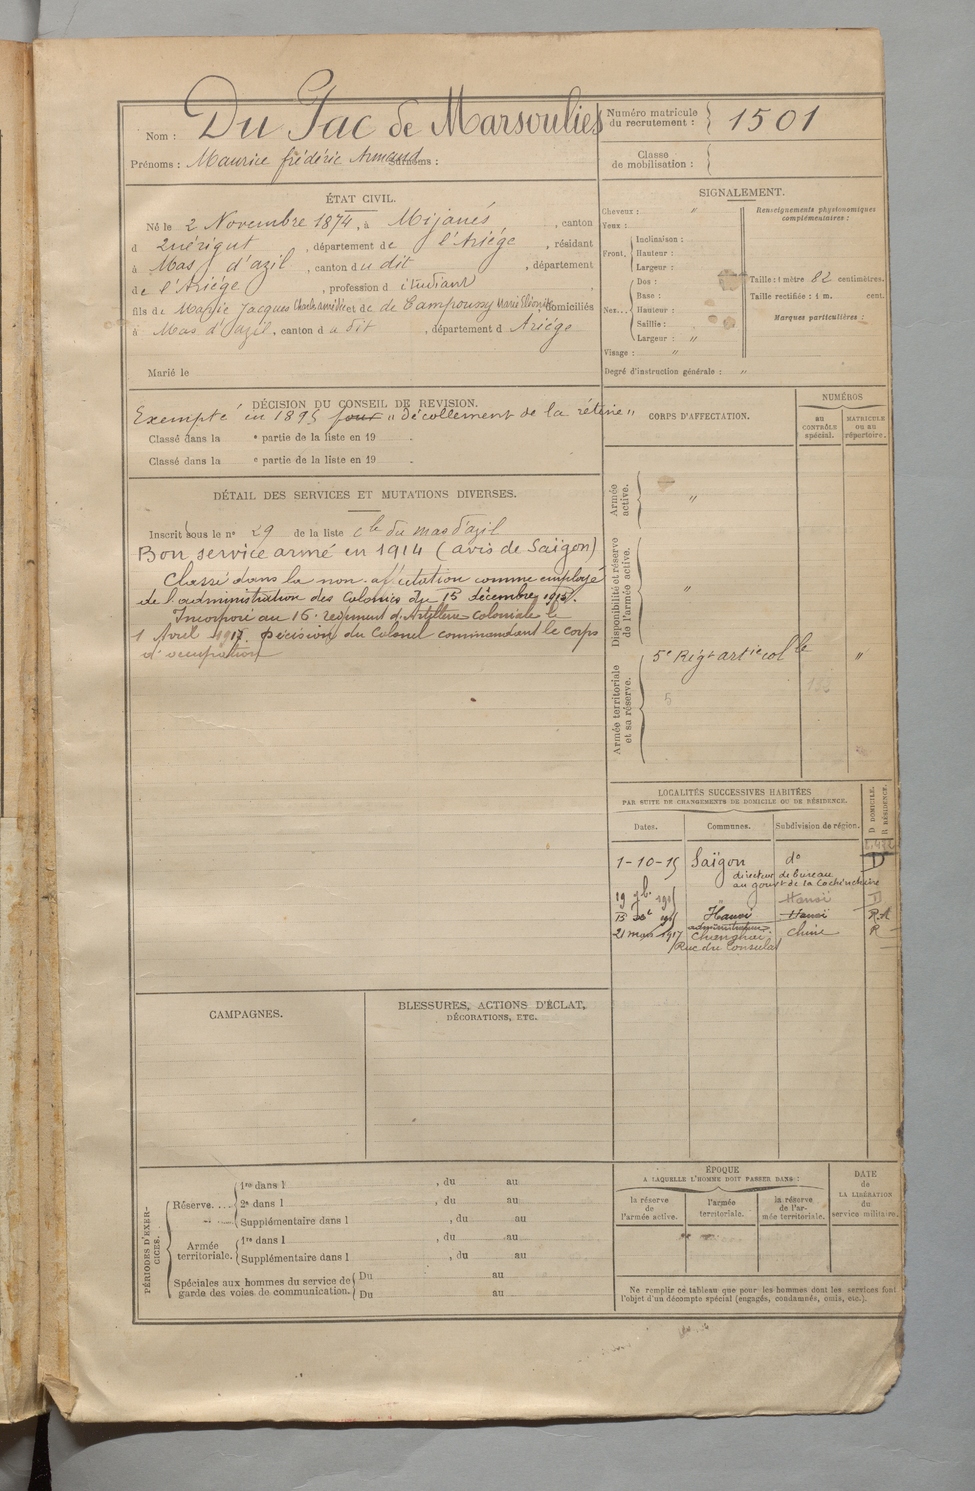 Nom : Du Pac de Marsoulies
Prénoms : Maurice frédéric Armand Surnoms :
Numéro matricule
du recrutement : 1501
Classe
de mobilisation :
ÉTAT CIVIL.
Né le 2 Novembre 1874, à Mijanés, canton
d Quérigut, département de l'Ariége, résidant
à Mas d'azil, canton du dit, département
de l'Ariége, profession d étudiant
fils de Marie Jacques Charles et de de Campoussy Marie, domiciliés
à Mas d'azil, canton du dit, département d Ariége
Marié le
SIGNALEMENT.
Cheveux : "
Yeux :
Front, Inclinaison :
Hauteur :
Largeur :
Nez... Dos :
Base :
Hauteur :
Saillie :
Largeur : "
Visage : "
Degré d'instruction générale : "
Renseignements physionomiques
complémentaires :
Taille : 1 mètre 82 centimètres.
Taille rectifiée : 1 m. cent.
Marques particulières :
DÉCISION DU CONSEIL DE REVISION.
Exempté en 1895 pour "décollement de la rétine"
Classé dans la e partie de la liste en 19 .
Classé dans la e partie de la liste en 19 .
DÉTAIL DES SERVICES ET MUTATIONS DIVERSES.
Inscrit sous le no 29 de la liste du mas d'azil
Bon service armé en 1914 (avis de Saïgon)
Classé dans la non-affectation comme employé
de l'administration des Colonies du 15 décembre
Incorporé au régiment d'Artillerie coloniale le
1 Avril 1917. Décision du Colonel commandant le corps
d'occupation
CORPS D'AFFECTATION.
NUMÉROS
au
CONTRÔLE
spécial.
MATRICULE
ou au
répertoire.
Armée
active.
"
Disponibilité et réserve
de l'armée active.
"
Armée territoriale
et sa réserve.
5e Régt artie colle "
5
LOCALITÉS SUCCESSIVES HABITÉES
PAR SUITE DE CHANGEMENTS DE DOMICILE OU DE RÉSIDENCE.
Dates.
Communes.
Subdivision de région.
D DOMICILE.
R RÉSIDENCE.
1-10-15 Saïgon do D
directeur de bureau
au gouvt de la Cochinchine
Hanoï D
Hanoï Hanoï
21 mars 1917 Chine R
Rue du Consulat
CAMPAGNES.
BLESSURES, ACTIONS D'ÉCLAT,
DÉCORATIONS, ETC.
PÉRIODES D'EXER-
CICES.
Réserve....
1re dans l , du au
2e dans l , du au
Supplémentaire dans l , du au
Armée
territoriale.
1re dans l , du au
Supplémentaire dans l , du au
Spéciales aux hommes du service de
garde des voies de communication.
Du au
Du au
ÉPOQUE
A LAQUELLE L'HOMME DOIT PASSER DANS :
la réserve
de
l'armée active.
l'armée
territoriale.
la réserve
de l'ar-
mée territoriale.
DATE
de
LA LIBÉRATION
du
service militaire.
Ne remplir ce tableau que pour les hommes dont les services font
l'objet d'un décompte spécial (engagés, condamnés, omis, etc.).